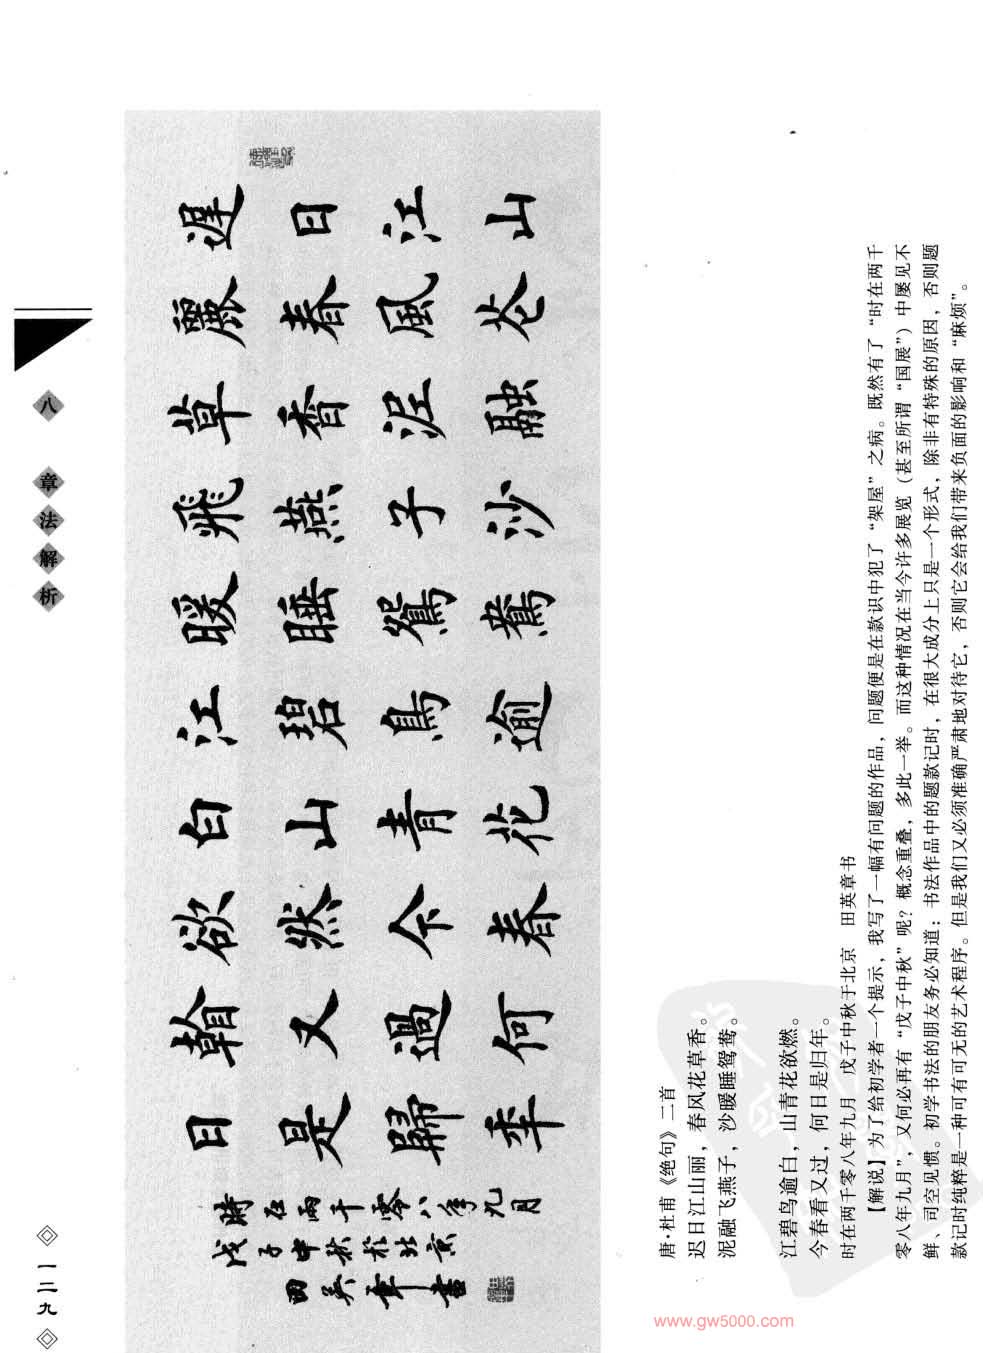 八 章法解析
遲日江山
麗春風花
草香泥融
飛燕子沙
暖睡鴛鴦
江碧鳥逾
白山青花
欲然今春
看又過何
日是歸年
時在兩千零八年九月
戊子中秋於北京
田英章書
唐·杜甫《绝句》二首
迟日江山丽，春风花草香。
泥融飞燕子，沙暖睡鸳鸯。
江碧鸟逾白，山青花欲燃。
今春看又过，何日是归年。
时在两千零八年九月 戊子中秋于北京 田英章书
【解说】为了给初学者一个提示，我写了一幅有问题的作品，问题便是在款识中犯了“架屋”之病。既然有了“时在两千
零八年九月”，又何必再有“戊子中秋”呢？概念重叠，多此一举。而这种情况在当今许多展览（甚至所谓“国展”）中屡见不
鲜、司空见惯。初学书法的朋友务必知道：书法作品中的题款记时，在很大成分上只是一个形式，除非有特殊的原因，否则题
款记时纯粹是一种可有可无的艺术程序。但是我们又必须准确严肃地对待它，否则它会给我们带来负面的影响和“麻烦”。
一二九
www.gw5000.com